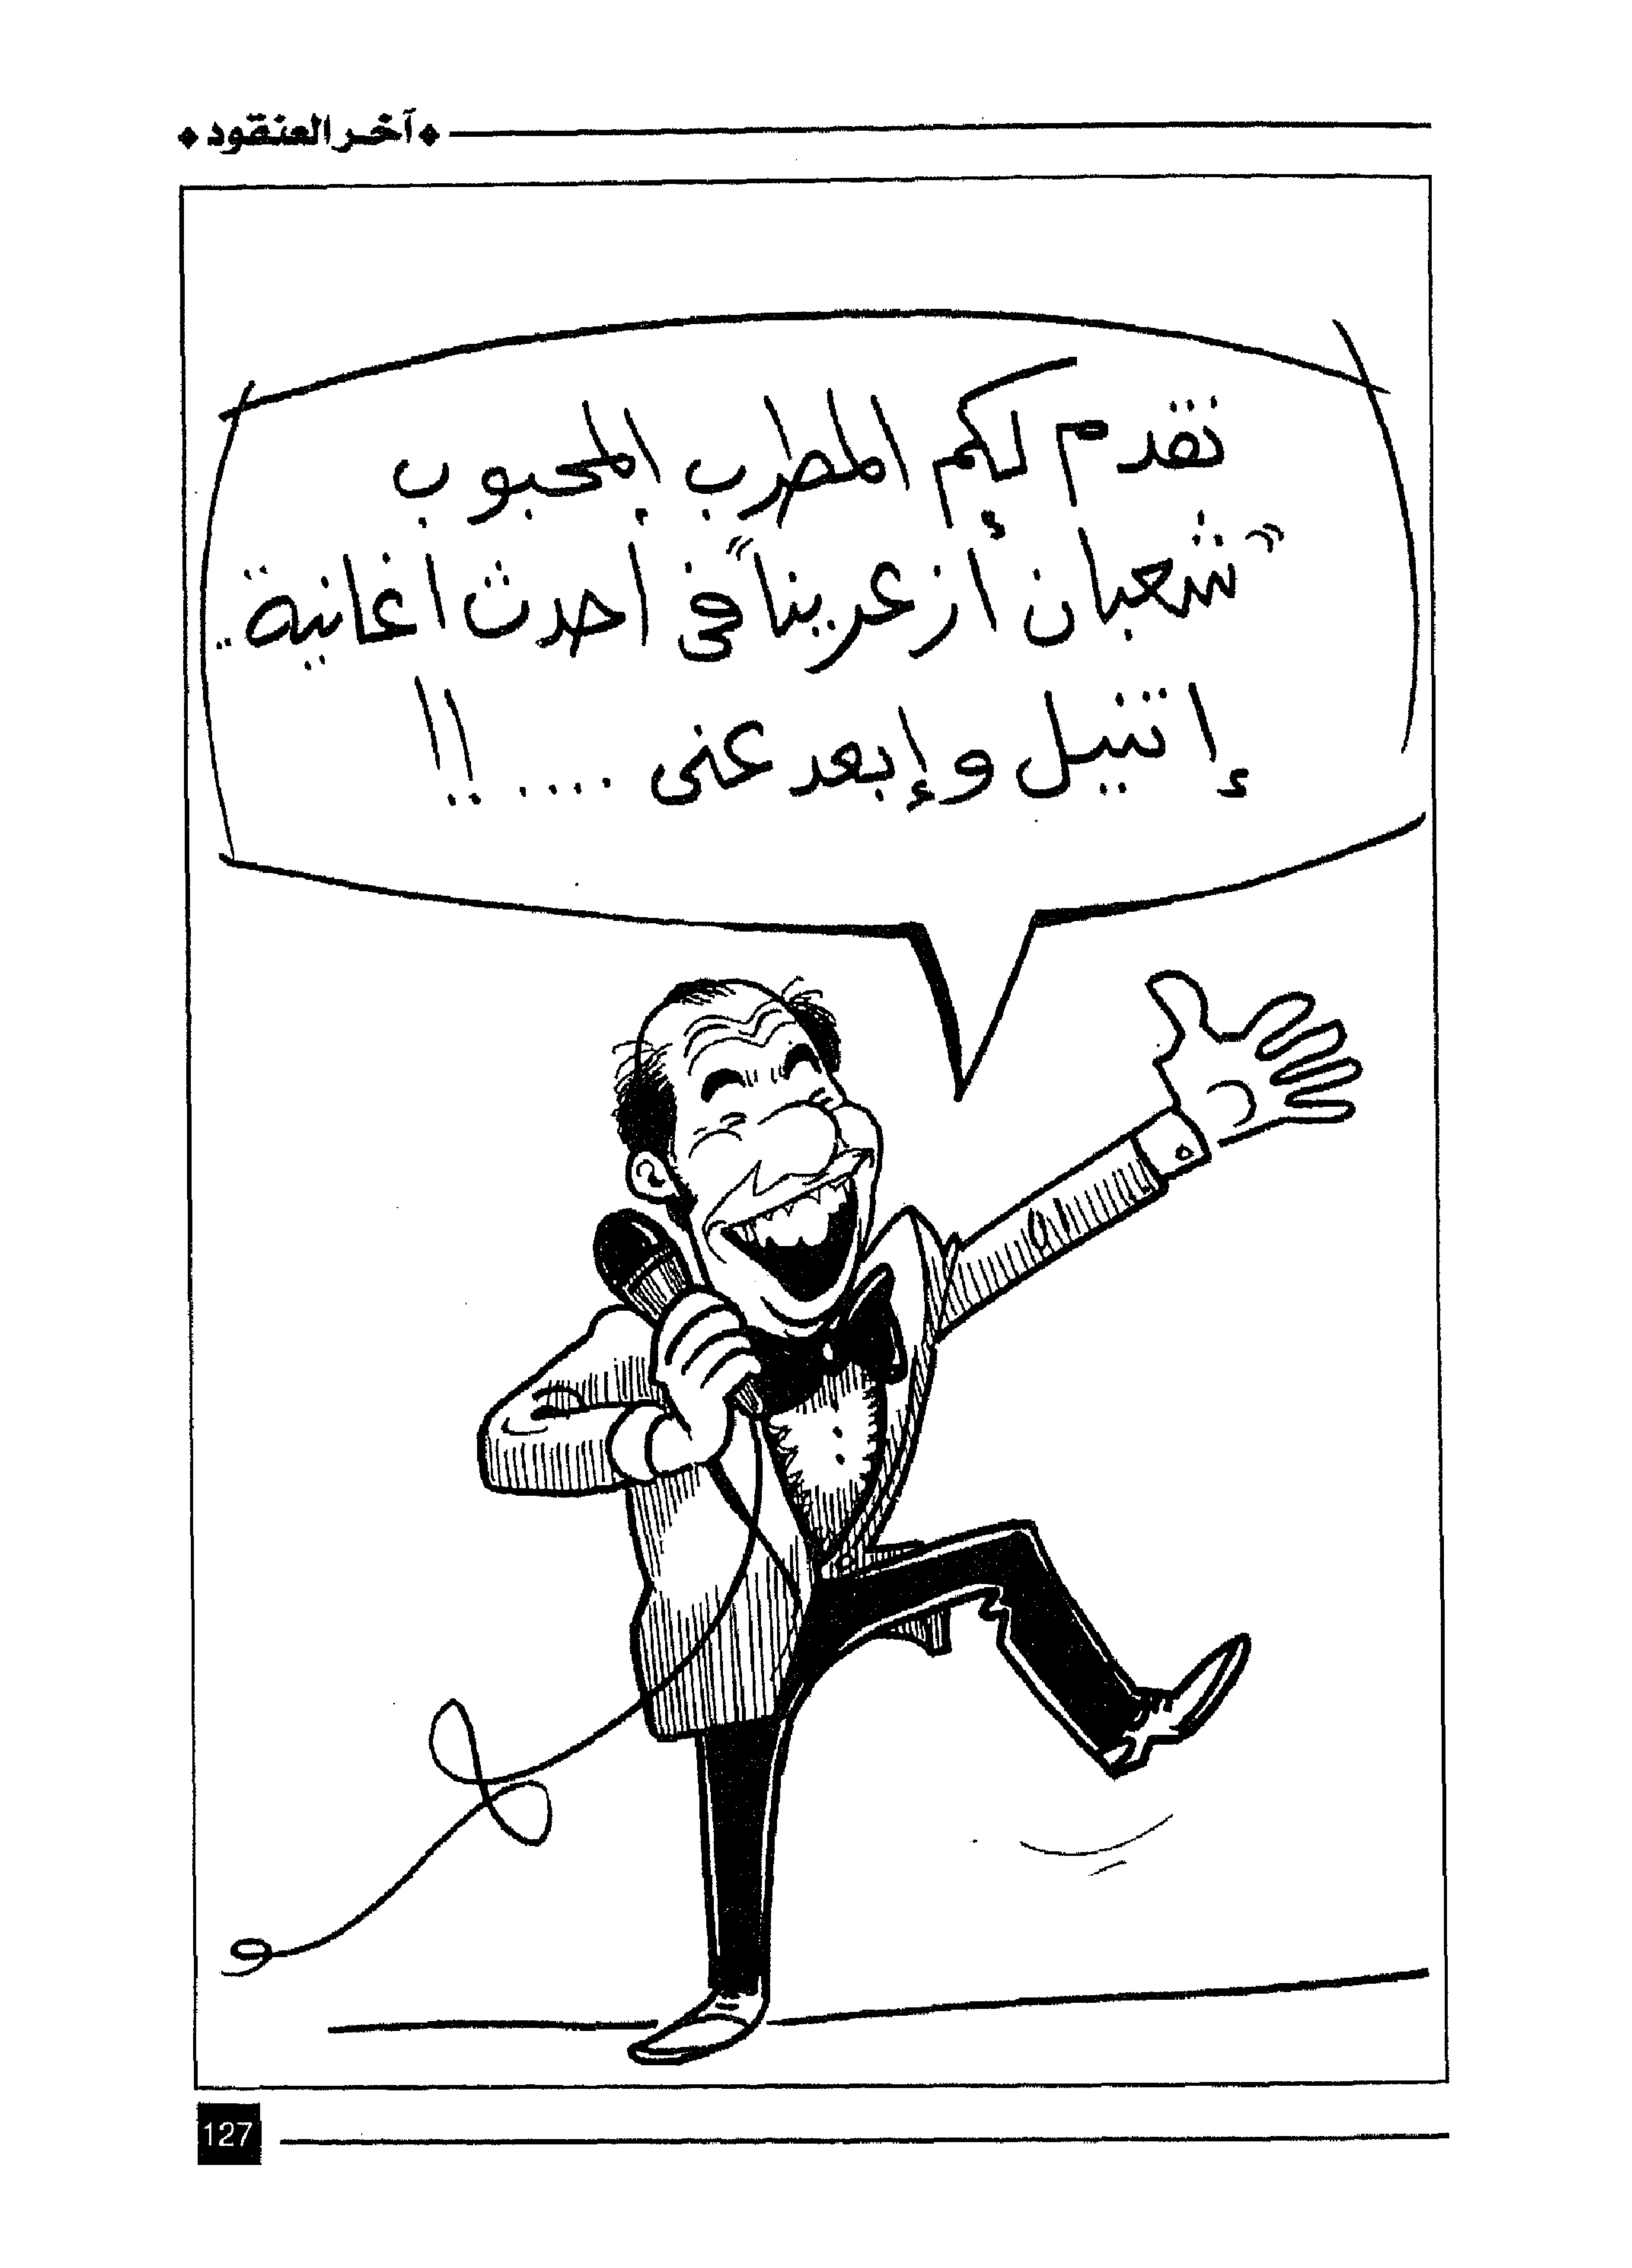 آخر العنقود
نقدم لكم المطرب المحبوب
"شعبان أزعرينا" فى احدث اغانية..
إتنيل وإبعد عنى ....!!
127